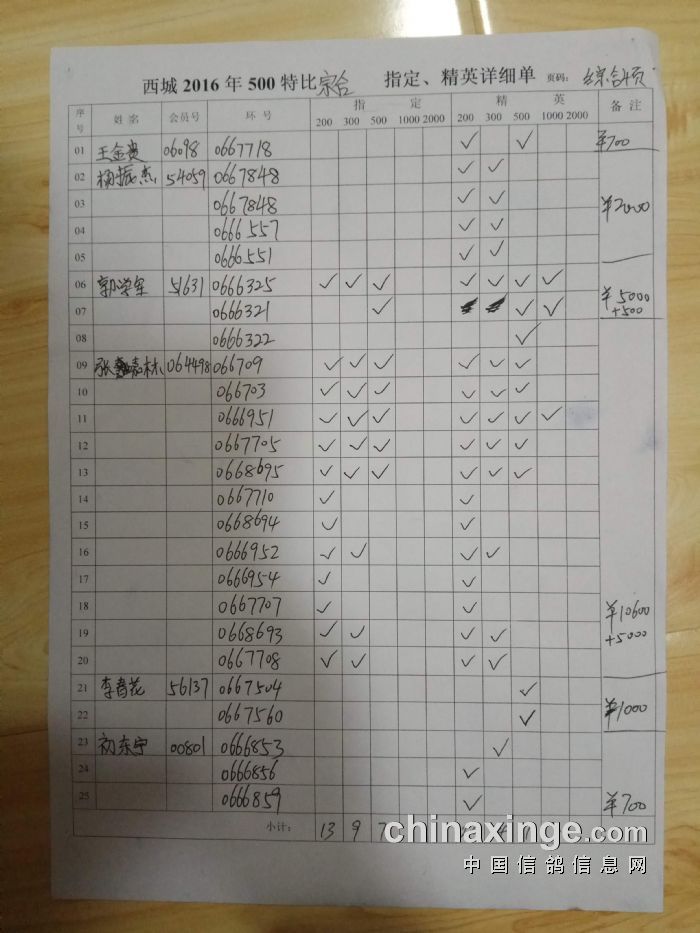 西城 2016 年 500 特比 综合 指定、精英详细单 页码： 综合4页
序号 姓 名 会员号 环 号 指 定 精 英 备 注
200 300 500 1000 2000 200 300 500 1000 2000
01 王金贵 06098 0667718 ✓ ✓ ¥700
02 杨振杰 54059 0667848 ✓ ✓
03 0667848 ✓ ✓ ¥2000
04 0666557 ✓ ✓
05 0666551 ✓ ✓
06 郭学军 51631 0666325 ✓ ✓ ✓ ✓ ✓ ✓ ✓ ¥5000
07 0666321 ✓ ✓ ✓ +500
08 0666322 ✓
09 张嘉林 064498 066709 ✓ ✓ ✓ ✓ ✓ ✓
10 066703 ✓ ✓ ✓ ✓ ✓ ✓
11 0666951 ✓ ✓ ✓ ✓ ✓ ✓ ✓
12 0667705 ✓ ✓ ✓ ✓ ✓ ✓
13 0668695 ✓ ✓ ✓ ✓ ✓ ✓
14 0667710 ✓ ✓
15 0668694 ✓ ✓
16 0666952 ✓ ✓ ✓ ✓
17 0666954 ✓ ✓
18 0667707 ✓ ✓ ¥10600
19 0668693 ✓ ✓ ✓ ✓ +5000
20 0667708 ✓ ✓ ✓ ✓
21 李春花 56137 0667504 ✓
22 0667560 ✓ ¥1000
23 初东宁 00801 0666853 ✓
24 0666856 ✓
25 0666859 ✓ ¥700
小计： 13 9 7
chinaxinge.com
中国信鸽信息网